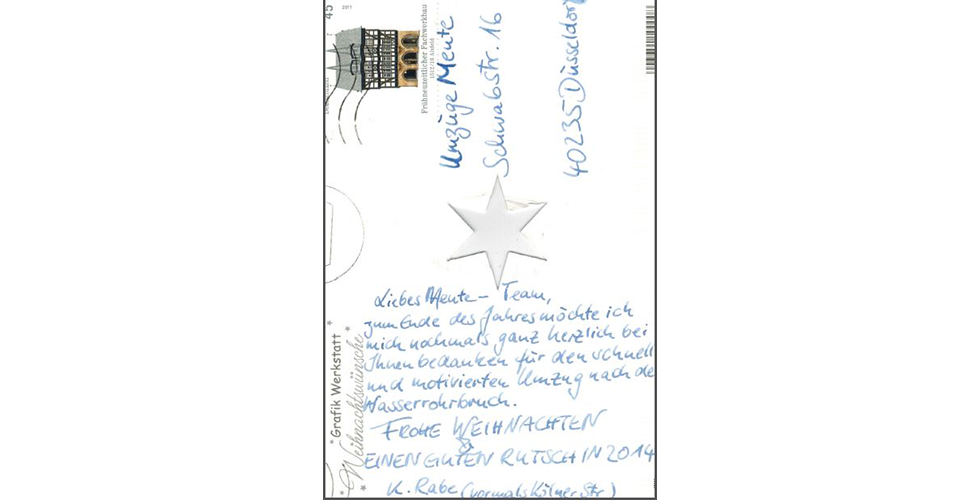 45
2011
Frühneuzeitlicher Fachwerkbau
Umzüge Meute
Schwabstr. 16
40235 Düsseldorf
Liebes Meute-Team,
zum Ende des Jahres möchte ich
mich nochmals ganz herzlich bei
Ihnen bedanken für den schnell
und motivierten Umzug nach de
Wasserrohrbruch.
FROHE WEIHNACHTEN
&
EINEN GUTEN RUTSCH IN 2014
K. Rabe (vormals Kölner Str)
Grafik Werkstatt
Weihnachtswünsche